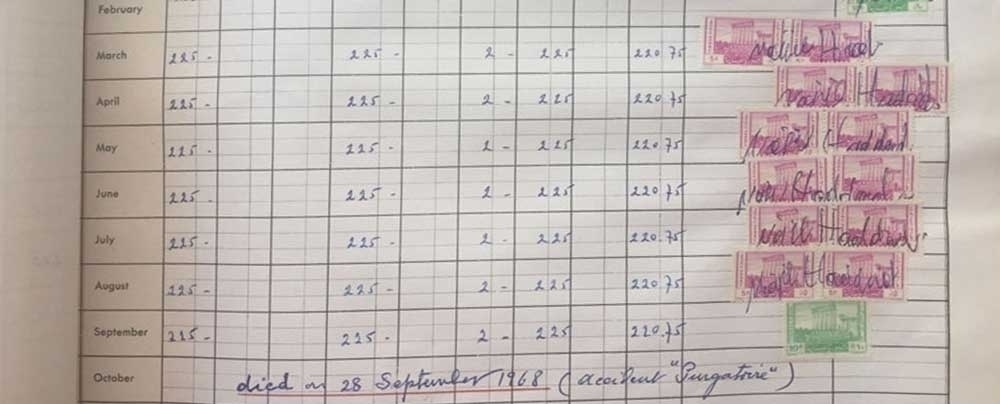 February
March 225 - 225 - 2 - 225 220.75
April 225 - 225 - 2 - 225 220.75 Haddad
May 225 - 225 - 2 - 225 220.75 Haddad
June 225 - 225 - 2 - 225 220.75
July 225 - 225 - 2 - 225 220.75 Haddad
August 225 - 225 - 2 - 225 220.75 Haddad
September 225 - 225 - 2 - 225 220.75
October died on 28 September 1968 (accident "Purgatoire")